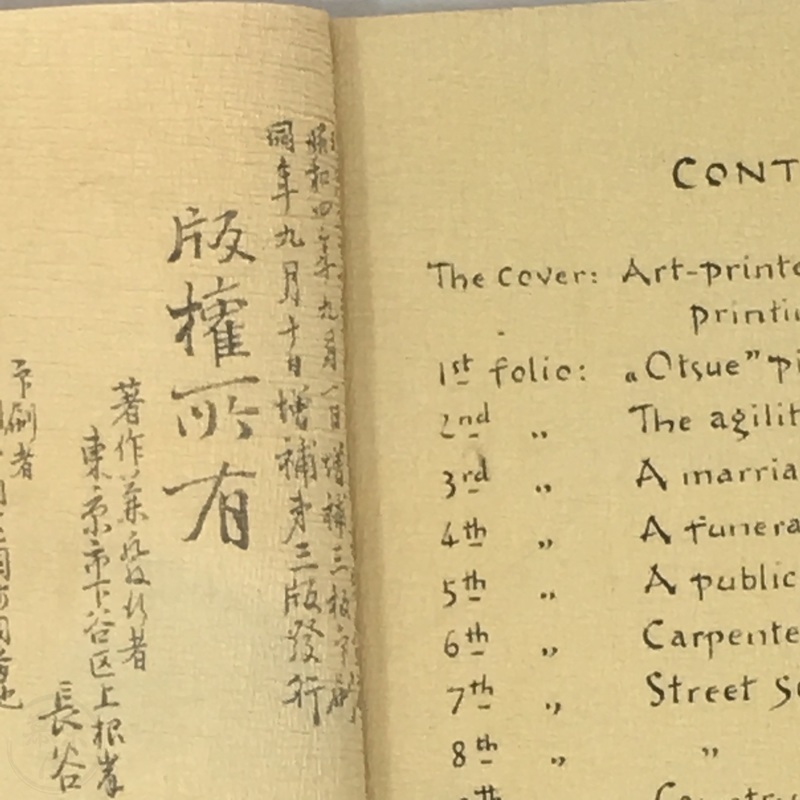 昭和四年九月一日増補三版印刷
同年九月十日増補第三版發行
版權所有
著作兼發行者
東京市下谷区上根岸
長谷
印刷者
CONT
The cover: Art-printe
printi
1st folio: „Otsue” pi
2nd „ The agilit
3rd „ A marria
4th „ A funera
5th „ A public
6th „ Carpente
7th „ Street s
8th „ „